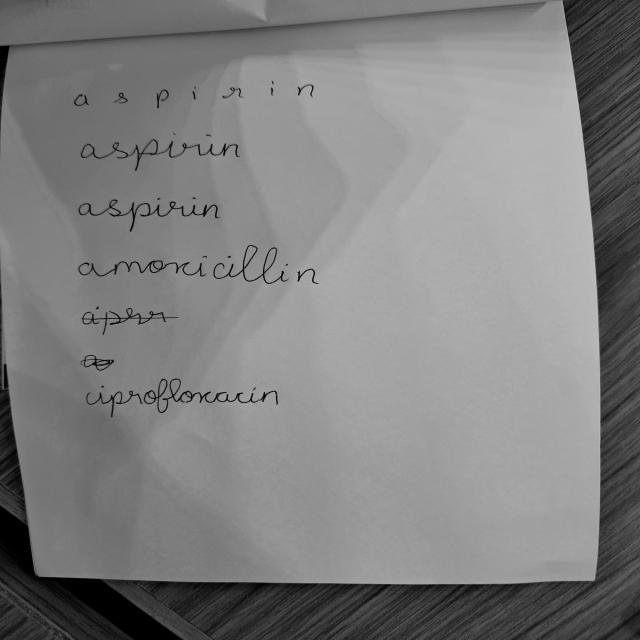 a s p i r i n
aspirin
aspirin
amoxicillin
ciprofloxacin